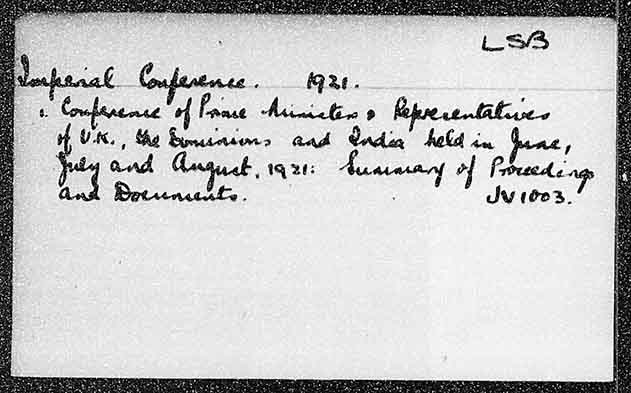 LSB
Imperial Conference. 1921.
1. Conference of Prime Ministers & Representatives
of U.K., the Dominions and India held in June,
July and August, 1921: Summary of Proceedings
and Documents. JV1003.